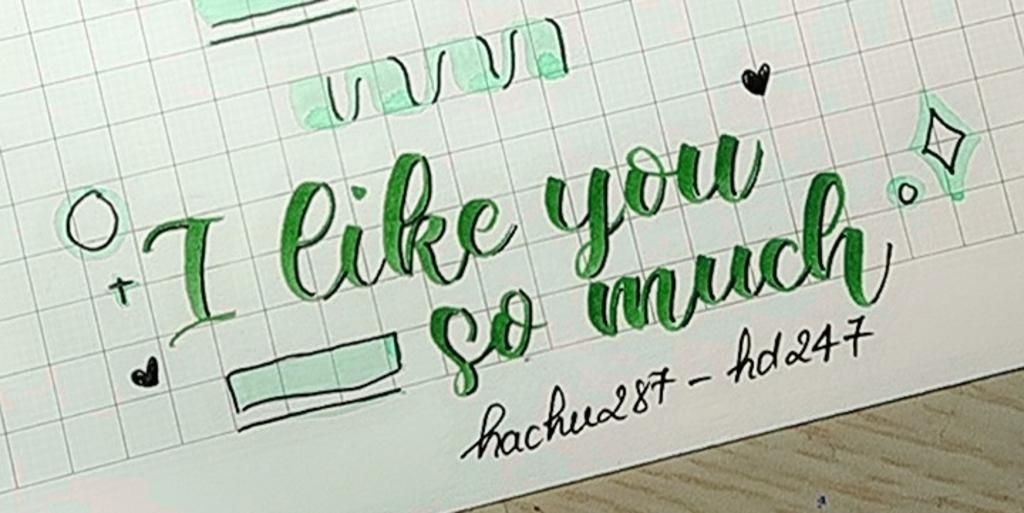 I like you
so much
hachu287 - hd247